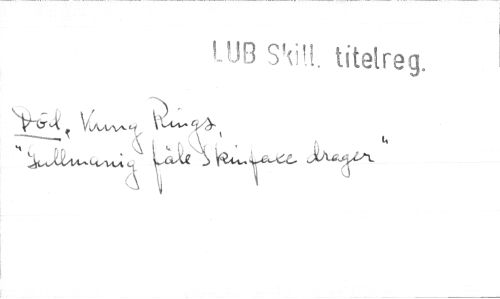 LUB Skill. titelreg.
Död, Kung Rings,
"Gullmanig fåle Skinfaxe drager"